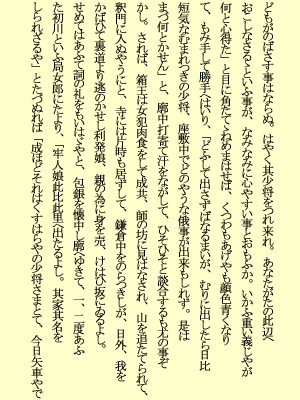 どもがのばさす事はならぬ。はやく其少将をつれ来れ。あなたがたの此辺へ
お□しなさるといふ事が、なみなみに心やすい事とおもふか。いかふ重い義じやが
何と心得た」と目に角たてくねめまはせば、くつわもあげやも顔色青くなり
て、もみ手して勝手へはいり、「どふして出さずばなるまいが、むりに出したら日比
短気なむまれつきの少将、座敷中でどのやうな俄事が出来もしれず。是は
まづ何とかせん」と、廓中打寄て汗をながして、ひそひそと談合するも尤の事ぞ
かし。されば、箱王は女犯肉食をして成共、師の坊に見はなされ、山を追たてられて、
釈門に入ぬやうにと、寺には片時も居ずして、鎌倉中をのらつきしが、日外、我を
かばいて裏道より逃のかせし利発娘、親の為に身を売、けはひ坂にゐるよし。
せめてはあふて詞の礼をもいはぐやと、包銀を懐中し廓へゆきて、一、二度あふ
た初川といふ局女郎にたより、「牢人娘此比此里へ出たるよし。其家其名を
しられざるや」とたづぬれば「成ほどそれはくすはらやの少将さまとて、今日矢車やで